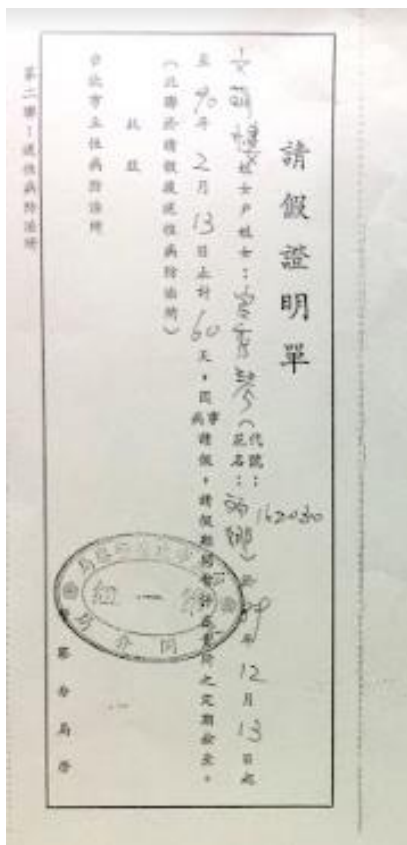 請假證明單
文萌樓妓女户妓女：官秀琴（代號：162030
花名：
於89年12月13日起
至90年2月13日止計60天，因事病請假，請假期間暫停在貴所之定期檢查。
（此聯於請假後送性病防治所）
此致
台北市立性病防治所
分局啓
第二聯：送性病防治所